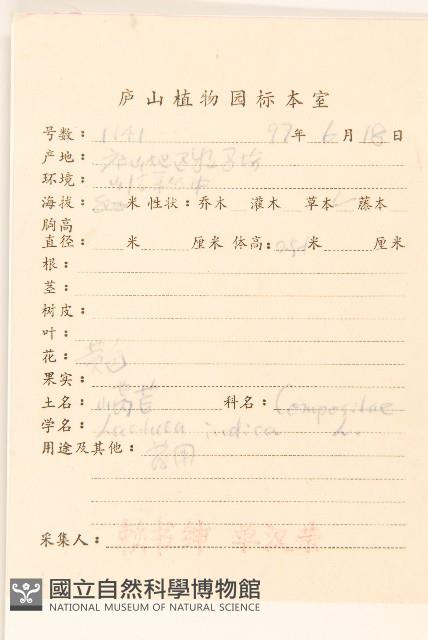 庐山植物园标本室
号数：1141 97年6月18日
产地：
环境：
海拔： 米 性状：乔木 灌木 草本✓ 藤本
胸高
直径： 米 厘米 体高： 米 厘米
根：
茎：
树皮：
叶：
花：黄色
果实：
土名：山莴苣 科名：Compositae
学名：Lactuca indica L.
用途及其他：药用
采集人：赖书绅 单汉荣
國立自然科學博物館
NATIONAL MUSEUM OF NATURAL SCIENCE